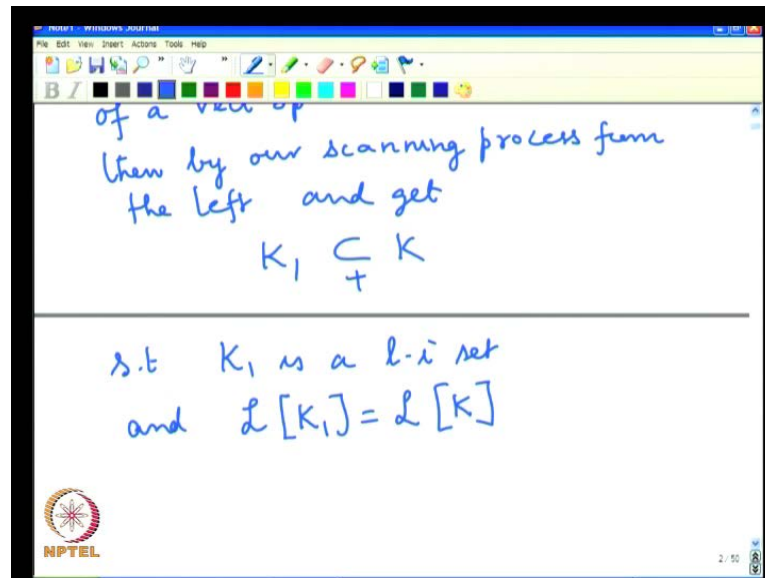 Note1 - Windows Journal
File Edit View Insert Actions Tools Help
B I
of a
then by our scanning process from
the left and get
K₁ ⊊ K
s.t K₁ is a l.i set
and L[K₁] = L[K]
NPTEL
2/50